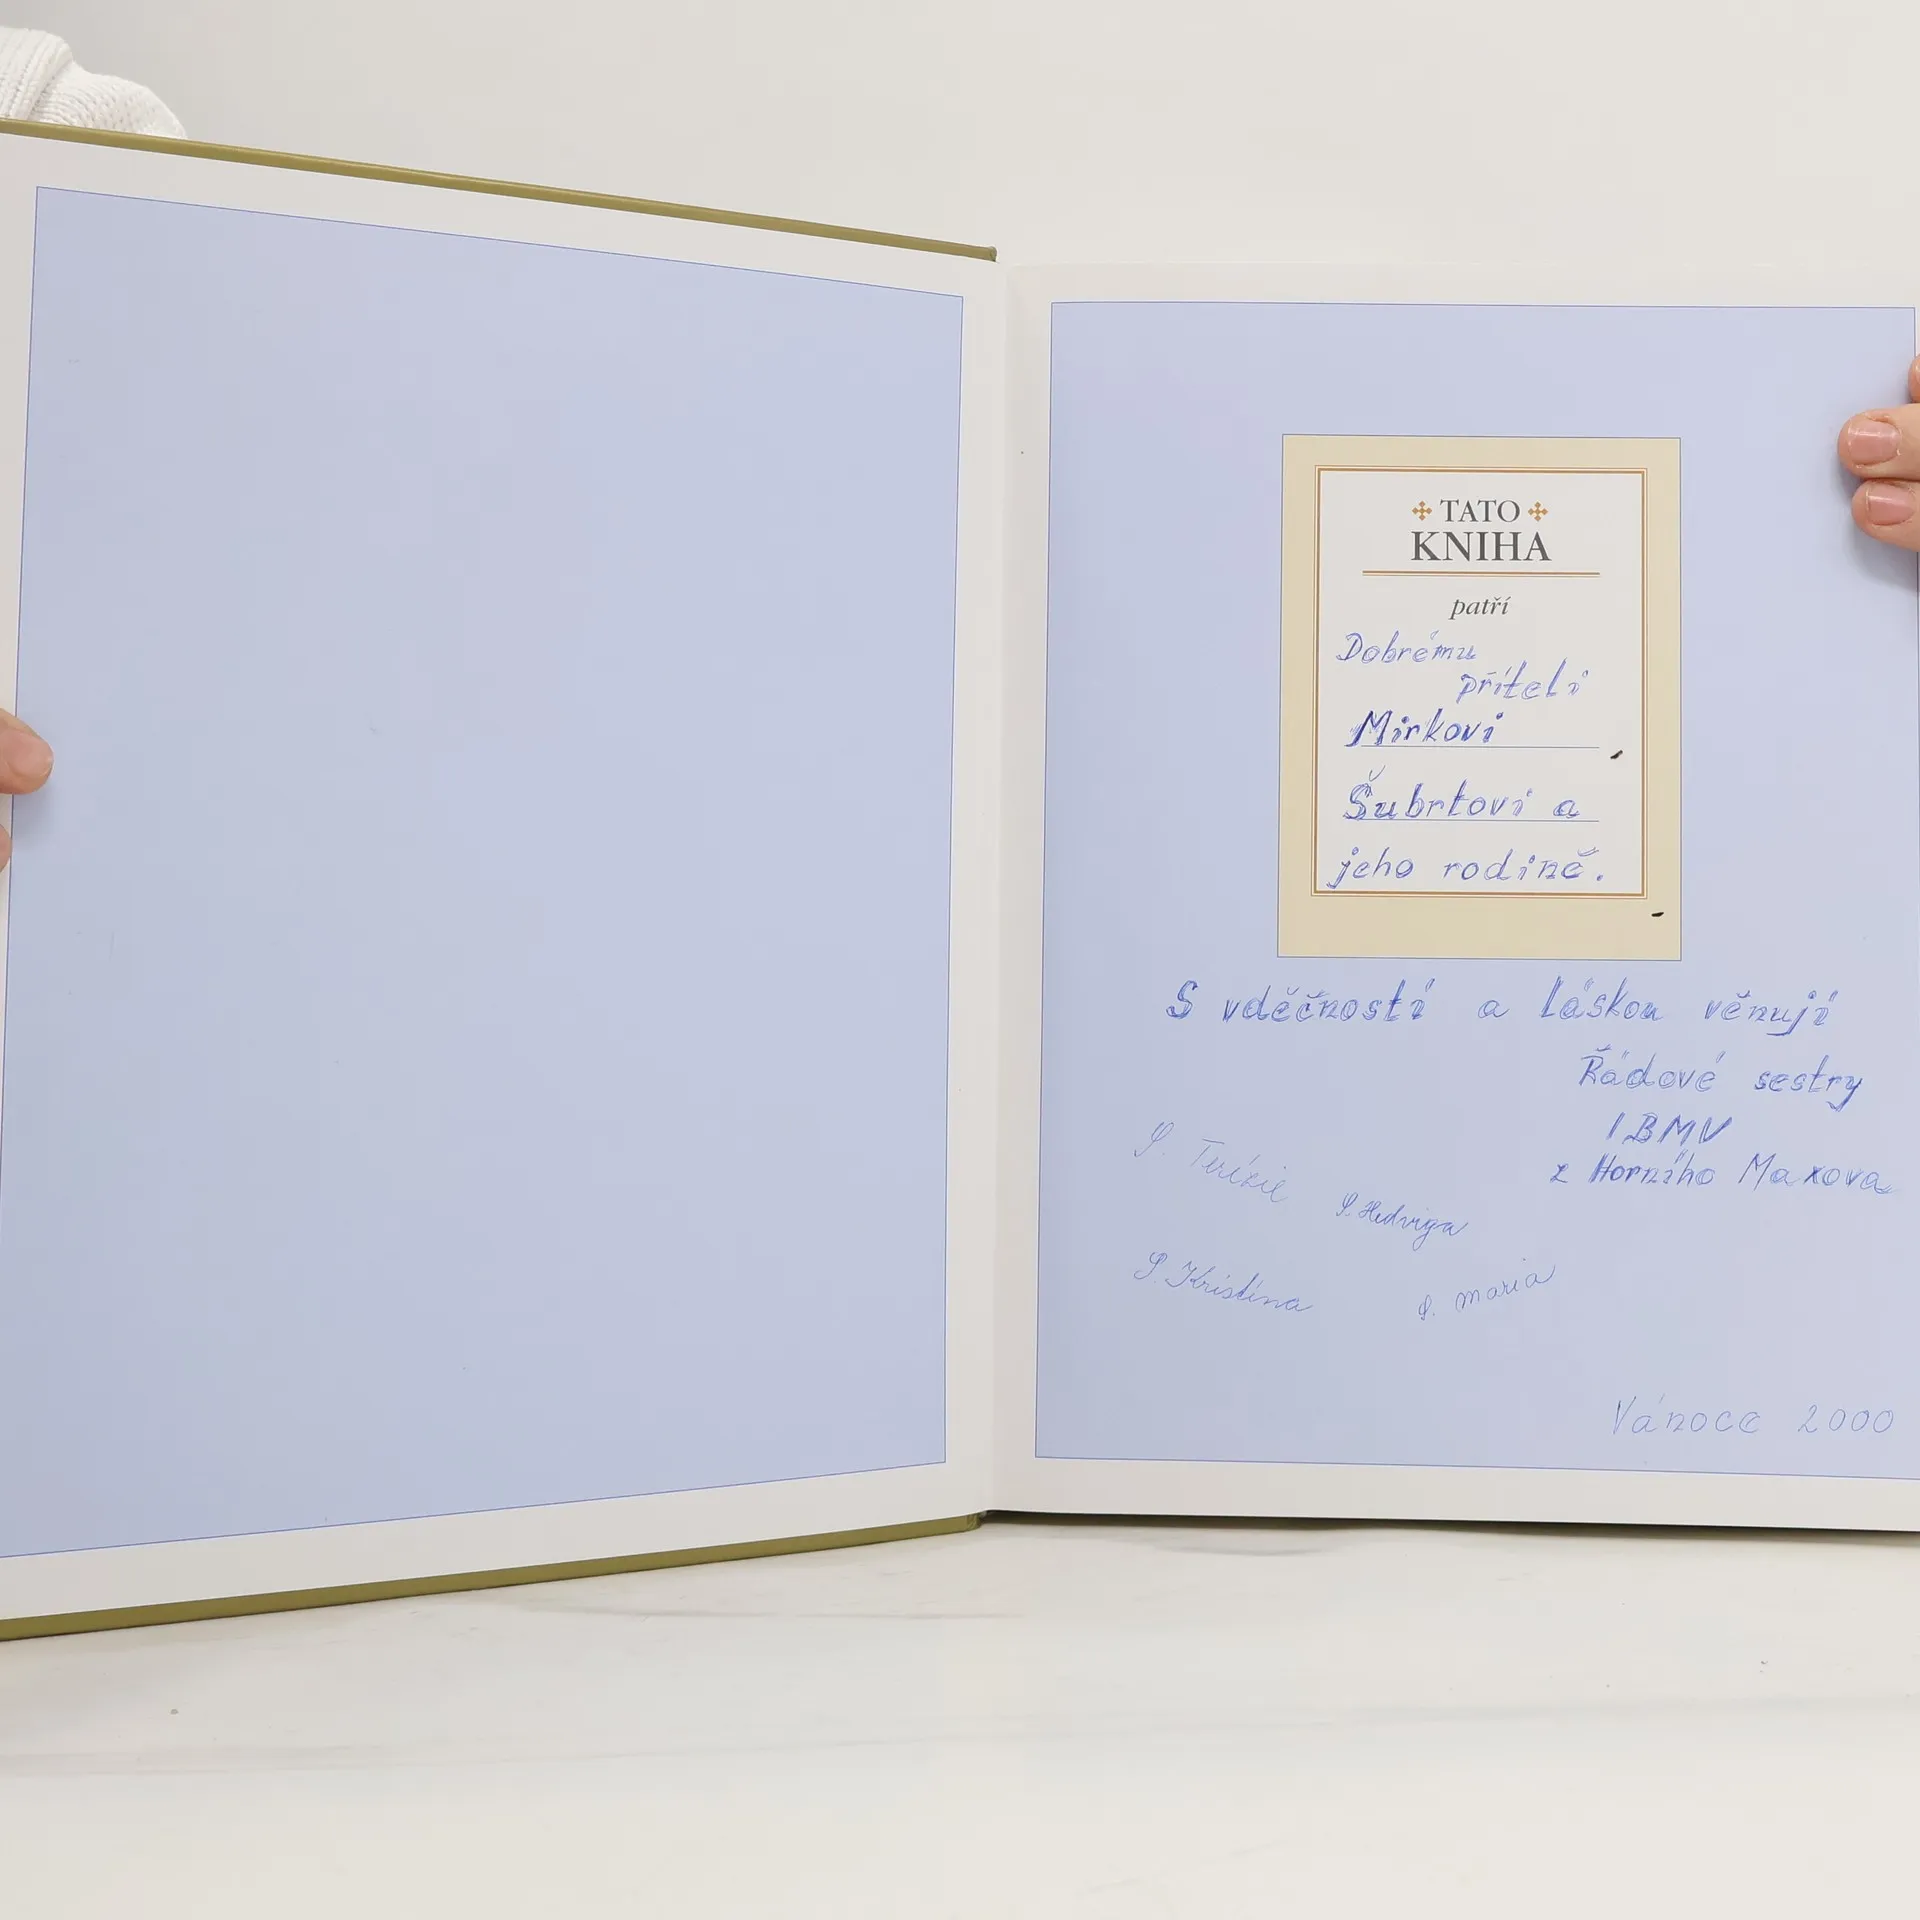 TATO
KNIHA
patří
Dobrému
příteli
Mirkovi
Šubrtovi a
jeho rodině.
S vděčností a láskou věnují
Řádové sestry
IBMV
z Horního Maxova
S. Terézie
S. Hedviga
S. Kristína
S. Maria
Vánoce 2000